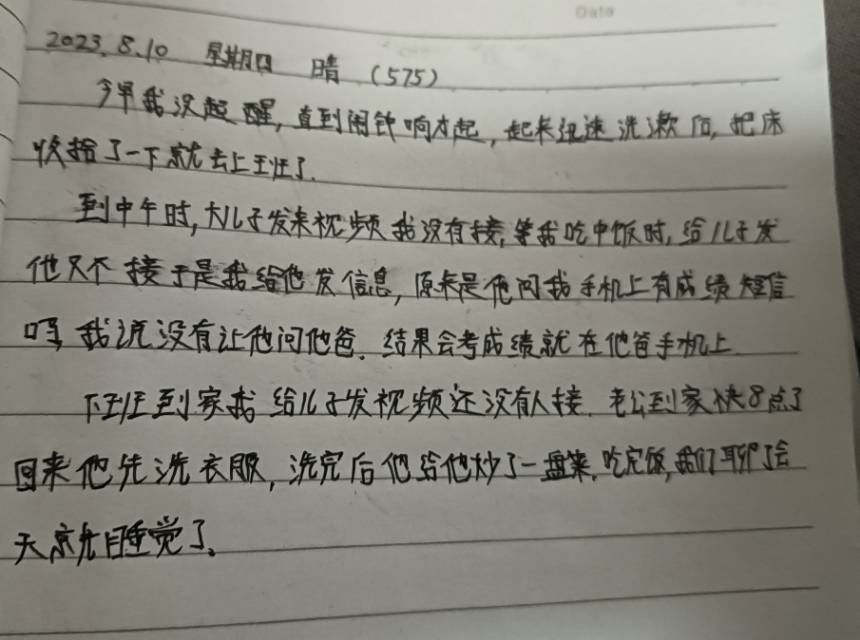 Date
2023.8.10 星期四 晴 (575)
今早我没起醒,直到闹钟响才起,起来迅速洗漱后,把床
收拾了一下就去上班了.
到中午时,大儿子发来视频我没有接,等我吃中饭时,给儿子发
他又不接于是我给他发信息,原来是他问我手机上有成绩短信
吗,我说没有让他问他爸.结果会考成绩就在他爸手机上.
下班到家我给儿子发视频还没有人接.老公到家快8点了
回来他先洗衣服,洗完后他给他炒了一盘菜,吃完饭,我们聊了会
天就睡觉了。